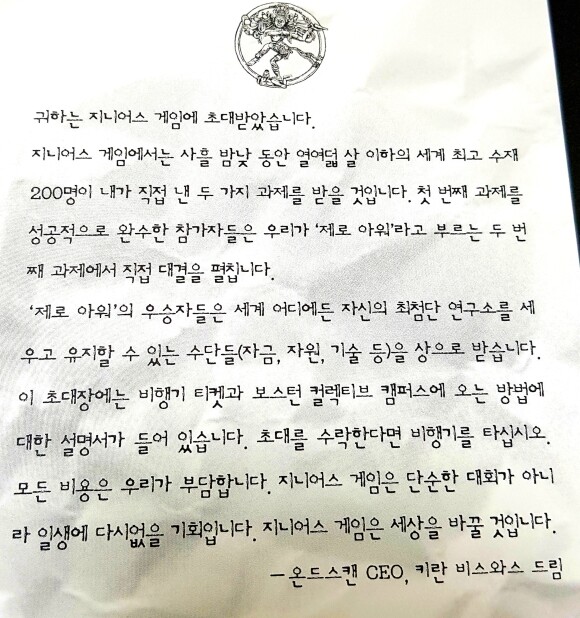 귀하는 지니어스 게임에 초대받았습니다.
지니어스 게임에서는 사흘 밤낮 동안 열여덟 살 이하의 세계 최고 수재
200명이 내가 직접 낸 두 가지 과제를 받을 것입니다. 첫 번째 과제를
성공적으로 완수한 참가자들은 우리가 ‘제로 아워’라고 부르는 두 번
째 과제에서 직접 대결을 펼칩니다.
‘제로 아워’의 우승자들은 세계 어디에든 자신의 최첨단 연구소를 세
우고 유지할 수 있는 수단들(자금, 자원, 기술 등)을 상으로 받습니다.
이 초대장에는 비행기 티켓과 보스턴 컬렉티브 캠퍼스에 오는 방법에
대한 설명서가 들어 있습니다. 초대를 수락한다면 비행기를 타십시오.
모든 비용은 우리가 부담합니다. 지니어스 게임은 단순한 대회가 아니
라 일생에 다시없을 기회입니다. 지니어스 게임은 세상을 바꿀 것입니다.
– 온드스캔 CEO, 키란 비스와스 드림